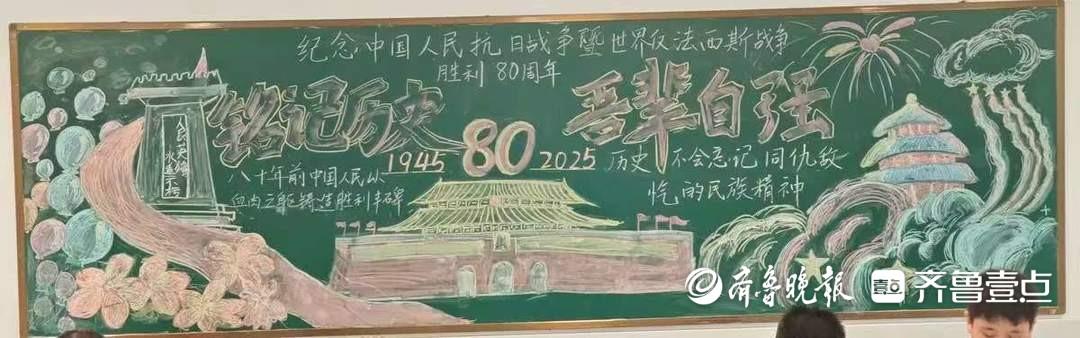 纪念中国人民抗日战争暨世界反法西斯战争
胜利80周年
铭记历史 吾辈自强
1945 80 2025
历史不会忘记同仇敌
忾的民族精神
八十年前中国人民以
血肉之躯铸造胜利丰碑
人民英雄
永垂不朽
齐鲁晚报
壹点 齐鲁壹点